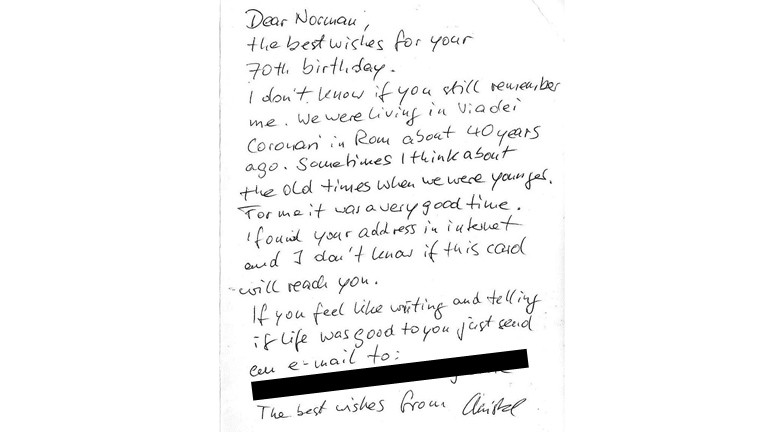 Dear Norman,
the best wishes for your
70th birthday.
I don't know if you still remember
me. We were living in Via dei
Coronari in Rom about 40 years
ago. Sometimes I think about
the old times when we were younger.
For me it was a very good time.
I found your address in internet
and I don't know if this card
will reach you.
If you feel like writing and telling
if life was good to you just send
an e-mail to:
The best wishes from Christel